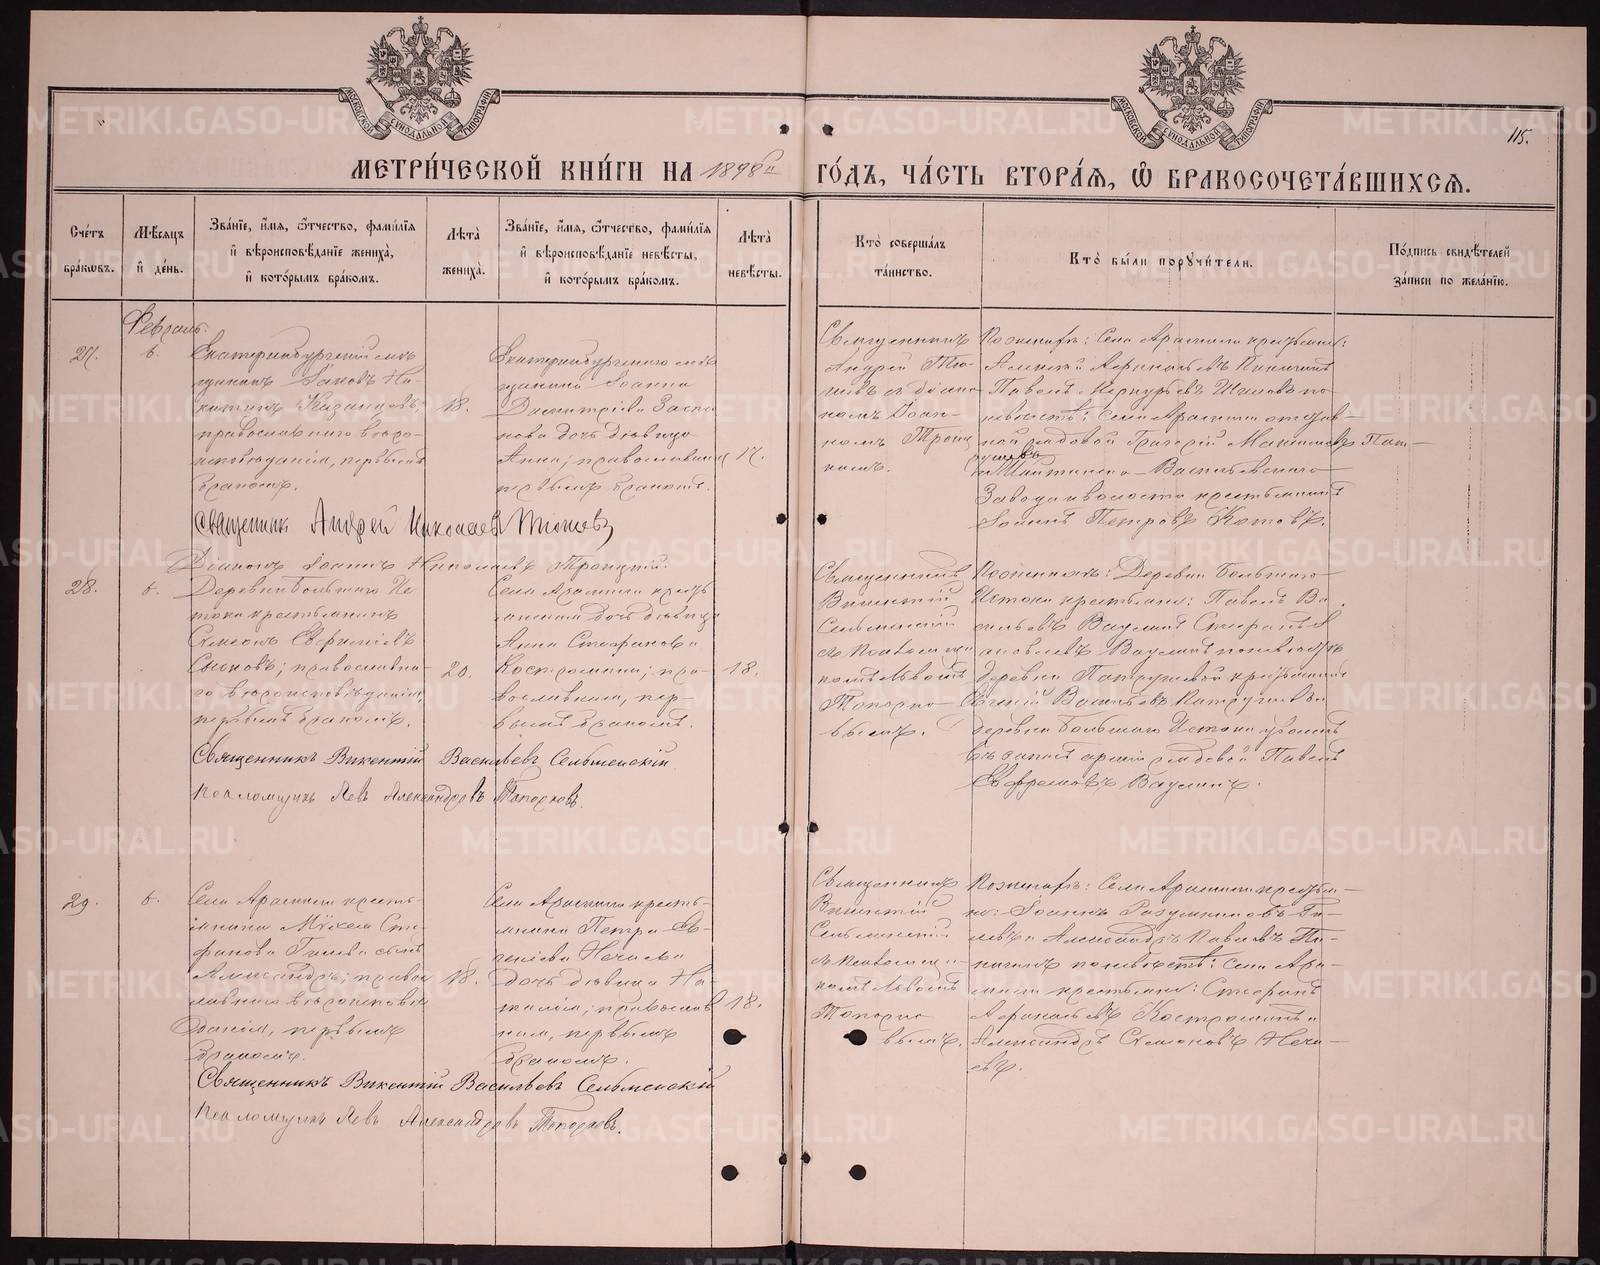 МЕТРИ́ЧЕСКОЙ КНИ́ГИ НА 1898й ГО́ДЪ, ЧА́СТЬ ВТОРА́Я, Ѡ҆ БРАКОСОЧЕТА́ВШИХСЯ.
115.
Сче́тъ бра́кѡвъ.
Мѣ́сяцъ и҆ де́нь.
Зва́нїе, и҆́мя, ѻ҆́тчество, фами́лїя
и҆ вѣроисповѣ́данїе жениха̀,
и҆ кото́рымъ бра́комъ.
Лѣ́та жениха̀.
Зва́нїе, и҆́мя, ѻ҆́тчество, фами́лїя
и҆ вѣроисповѣ́данїе невѣ́сты,
и҆ кото́рымъ бра́комъ.
Лѣ́та невѣ́сты.
Кто̀ соверша́лъ та́инство.
Кто̀ бы́ли порꙋчи́тели.
По́дпись свидѣ́телей за́писи по жела́нїю.
Февраль.
27.
6.
Екатеринбургскій мѣ-
щанинъ Іаковъ Ни-
китинъ Казанцевъ,
православнаго вѣро-
исповѣданія, первымъ
бракомъ.
18.
Екатеринбургскаго мѣ-
щанина Іоанна
Димитріева
дочь дѣвица
Анна; православная
первымъ бракомъ.
17.
Священникъ
Андрей Тю-
шевъ съ діако-
номъ Іоан-
номъ Троиц-
кимъ.
По женихѣ: Села Арамили крестьяне:
Павелъ Меркурьевъ
невѣстѣ: Села Арамили отстав-
ной рядовой Григорій
Шайтанско-Васильевского
Завода и волости крестьянинъ
Іоаннъ Петровъ Котовъ.
Священник Андрей Николаев Тюшевъ
Діаконъ Іоаннъ Николаевъ Троицкій.
28.
6.
Деревни Большаго Ис-
тока крестьянинъ
Симеонъ Евфиміевъ
православна-
го вѣроисповѣданія,
первымъ бракомъ.
20.
Села Арамили кресть-
янина дочь дѣвица
Анна Стефанова
Костромина; пра-
вославная, пер-
вымъ бракомъ.
18.
Священникъ
Викентій
Сельменскій
съ Псаломщи-
комъ Львомъ
Топорко-
вымъ.
По женихѣ: Деревни Большаго
Истока крестьяне: Павелъ Ва-
сильевъ Ваулинъ Стефанъ
Ваулинъ по невѣстѣ
деревни Патрушевой крестьянинъ
Васильевъ Патрушевъ и
деревни Большаго Истока уволен.
въ запас арміи рядовой Павелъ
Ефремовъ Ваулинъ.
Священникъ Викентій Васильевъ Сельменскій
Псаломщикъ Левъ Александровъ Топорковъ.
29.
6.
Села Арамили кресть-
янина Михея Сте-
фанова сынъ
Александръ; право-
славнаго вѣроисповѣ-
данія, первымъ
бракомъ.
18.
Села Арамили кресть-
янина Петра Ев-
геніева Нечаева
дочь дѣвица На-
талія; православ-
ная, первымъ
бракомъ.
18.
Священникъ
Викентій
Сельменскій
съ Псаломщи-
комъ Львомъ
Топорко-
вымъ.
По женихѣ: Села Арамили крестья-
не: Іоаннъ
Александръ Павловъ
по невѣстѣ: Села Ара-
мили крестьяне: Стефанъ
Афанасьевъ Костроминъ и
Александръ Симеоновъ Неча-
евъ.
Священникъ Викентій Васильевъ Сельменскій
Псаломщикъ Левъ Александровъ Топорковъ.
МОСКОВСКОЙ СѴНОДАЛЬНОЙ ТИПОГРАФІИ
МОСКОВСКОЙ СѴНОДАЛЬНОЙ ТИПОГРАФІИ
METRIKI.GASO-URAL.RU